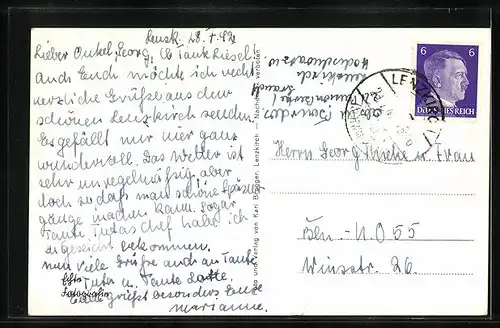 Lenzk. 28.7.42
Lieber Onkel Georg, lb Tante Liesel!
Auch Euch möchte ich recht
herzliche Grüße aus dem
schönen Lenzkirch senden.
Es gefällt mir hier ganz
wundervoll. Das Wetter ist
sehr unregelmäßig aber
doch so daß man schöne Spazier
gänge machen kann. Sogar
Tante Tutas Chef habe ich
zu Gesicht bekommen.
Nun viele Grüße auch an Tante
Tuta u. Tante Lotte.
Euch grüßt besonders Eure
Marianne.
Echte
Fotografie
Lenzkirch
Hochschwarzw
Druck und Verlag von Karl Brugger, Lenzkirch — Nachdruck verboten
6 6
DEUTSCHES REICH
LENZKIRCH
Herrn Georg und Frau
Bln. - N.O 55
Winsstr. 26.